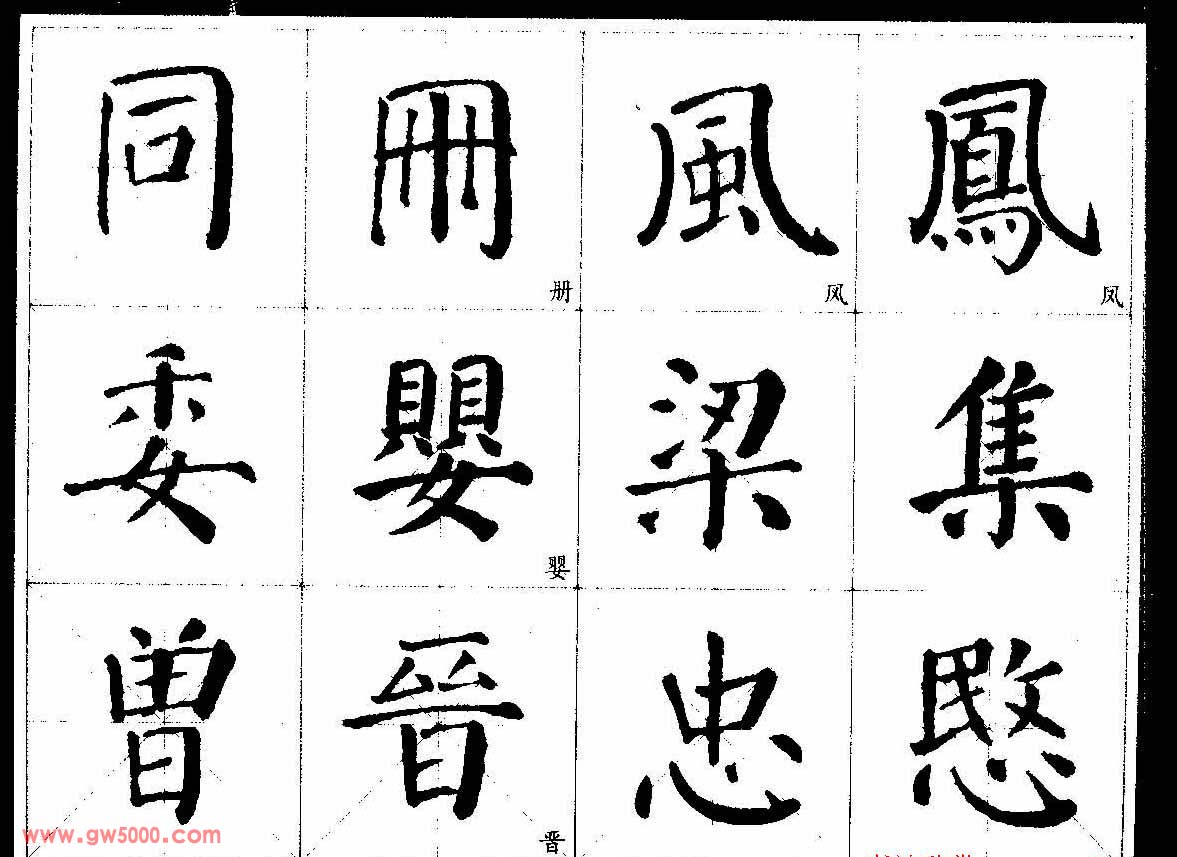 同 冊 風 鳳
册 风 凤
委 嬰 梁 集
婴
曾 晉 忠 愍
晋
www.gw5000.com